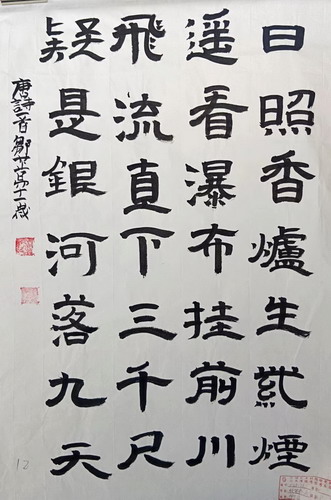 日照香爐生紫煙
遥看瀑布挂前川
飛流直下三千尺
疑是銀河落九天
唐詩一首鄒
十一歲
12